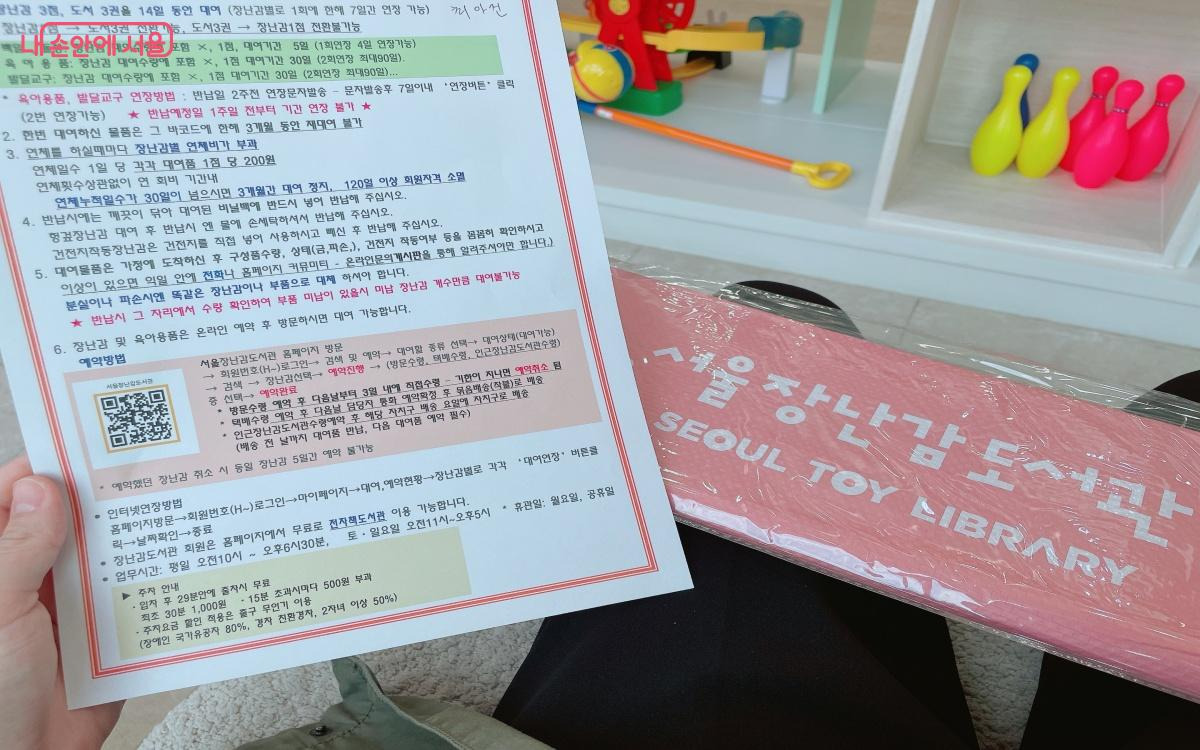 장난감 3점, 도서 3권을 14일 동안 대여 (장난감별로 1회에 한해 7일간 연장 가능)
장난감1점 → 도서3권 전환가능, 도서3권 → 장난감1점 전환불가능
내 손안에 서울
포함 ×, 1점, 대여기간 5일 (1회연장 4일 연장가능)
육 아 용 품: 장난감 대여수량에 포함 ×, 1점 대여기간 30일 (2회연장 최대90일).
발달교구: 장난감 대여수량에 포함 ×, 1점 대여기간 30일 (2회연장 최대90일)...
* 육아용품, 발달교구 연장방법 : 반납일 2주전 연장문자발송 - 문자발송후 7일이내 '연장버튼' 클릭
(2번 연장가능) ★ 반납예정일 1주일 전부터 기간 연장 불가 ★
2. 한번 대여하신 물품은 그 바코드에 한해 3개월 동안 재대여 불가
3. 연체를 하실때마다 장난감별 연체비가 부과
연체일수 1일 당 각각 대여품 1점 당 200원
연체횟수상관없이 연 회비 기간내
연체누적일수가 30일이 넘으시면 3개월간 대여 정지, 120일 이상 회원자격 소멸
4. 반납시에는 깨끗이 닦아 대여된 비닐백에 반드시 넣어 반납해 주십시오.
헝겊장난감 대여 후 반납시 엔 물에 손세탁하셔서 반납해 주십시오.
건전지작동장난감은 건전지를 직접 넣어 사용하시고 빼신 후 반납해 주십시오.
5. 대여물품은 가정에 도착하신 후 구성품수량, 상태(금,파손,), 건전지 작동여부 등을 꼼꼼히 확인하시고
이상이 있으면 익일 안에 전화나 홈페이지 커뮤미티 - 온라인문의게시판을 통해 알려주셔야만 합니다.)
분실이나 파손시엔 똑같은 장난감이나 부품으로 대체 하셔야 합니다.
★ 반납시 그 자리에서 수량 확인하여 부품 미납이 있을시 미납 장난감 개수만큼 대여불가능
6. 장난감 및 육아용품은 온라인 예약 후 방문하시면 대여 가능합니다.
예약방법
서울장난감도서관
서울장난감도서관 홈페이지 방문
→ 회원번호(H~)로그인→ 검색 및 예약→ 대여할 종류 선택→ 대여상태(대여가능)
→ 검색 → 장난감선택→ 예약진행 → (방문수령, 택배수령, 인근장난감도서관수령)
중 선택→ 예약완료
* 방문수령 예약 후 다음날부터 3일 내에 직접수령 - 기한이 지나면 예약취소 됨
* 택배수령 예약 후 다음날 담당자 통화 예약확정 후 묶음배송(착불)로 배송
* 인근장난감도서관수령예약 후 해당 자치구 배송 요일에 자치구로 배송
(배송 전 날까지 대여품 반납, 다음 대여품 예약 필수)
* 예약했던 장난감 취소 시 동일 장난감 5일간 예약 불가능
• 인터넷연장방법
홈페이지방문→회원번호(H~)로그인→마이페이지→대여,예약현황→장난감별로 각각 '대여연장' 버튼클
릭→날짜확인→종료
• 장난감도서관 회원은 홈페이지에서 무료로 전자책도서관 이용 가능합니다.
• 업무시간: 평일 오전10시 ~ 오후6시30분, 토·일요일 오전11시~오후5시 * 휴관일: 월요일, 공휴일
▶ 주차 안내
· 입차 후 29분안에 출차시 무료
최초 30분 1,000원 · 15분 초과시마다 500원 부과
· 주차요금 할인 적용은 출구 무인기 이용
(장애인 국가유공자 80%, 경차 친환경차, 2자녀 이상 50%)
서울장난감도서관
SEOUL TOY LIBRARY